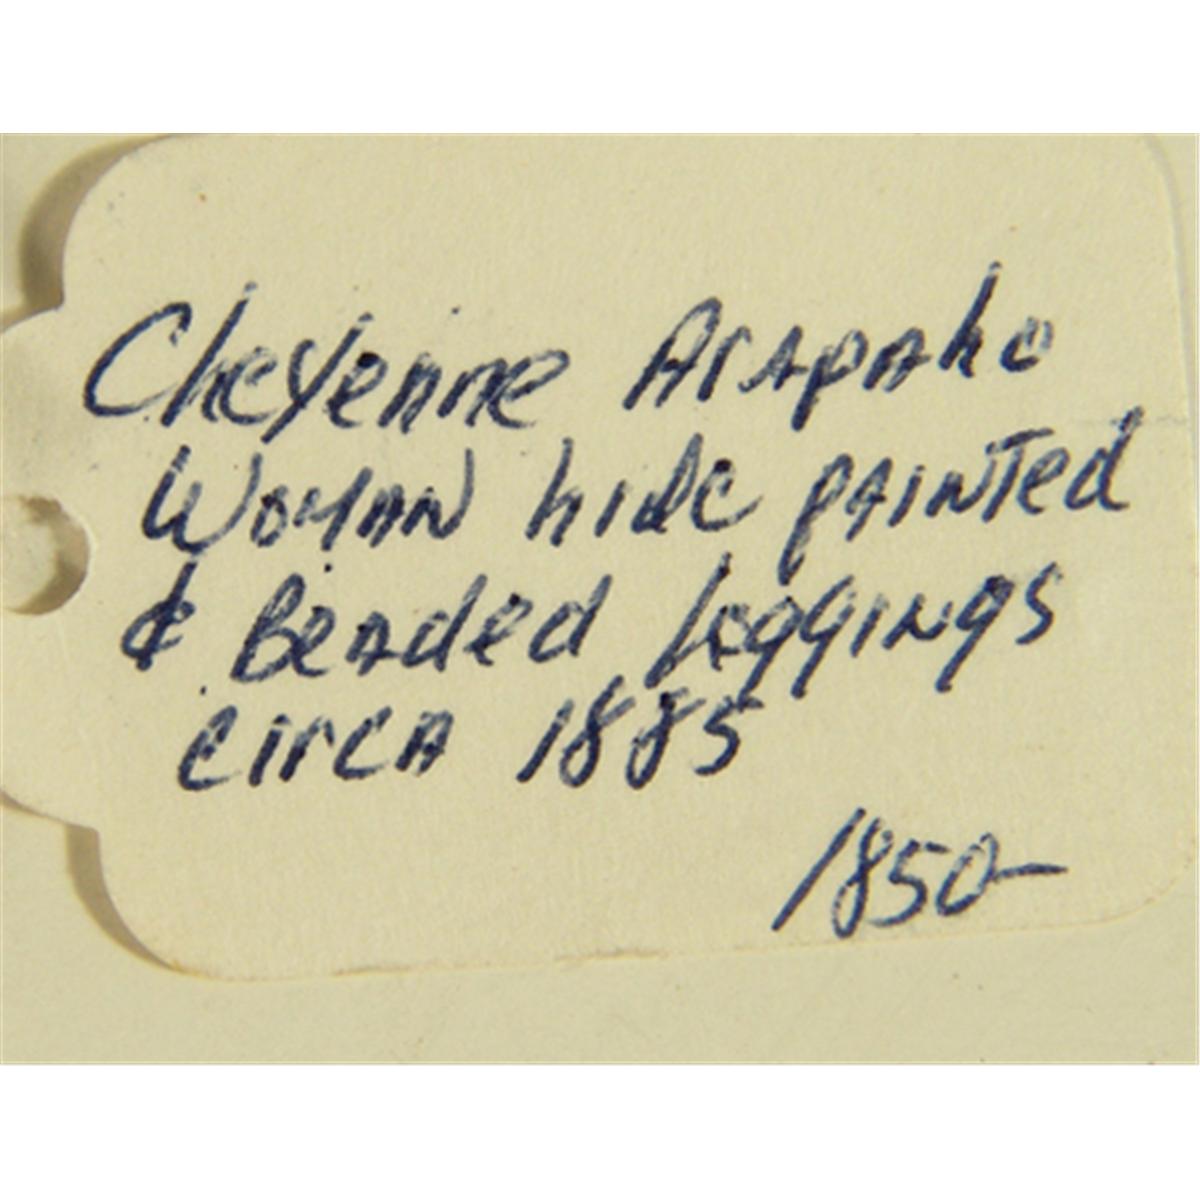 Cheyenne Arapaho
Woman hide painted
& Beaded leggings
circa 1885
1850-